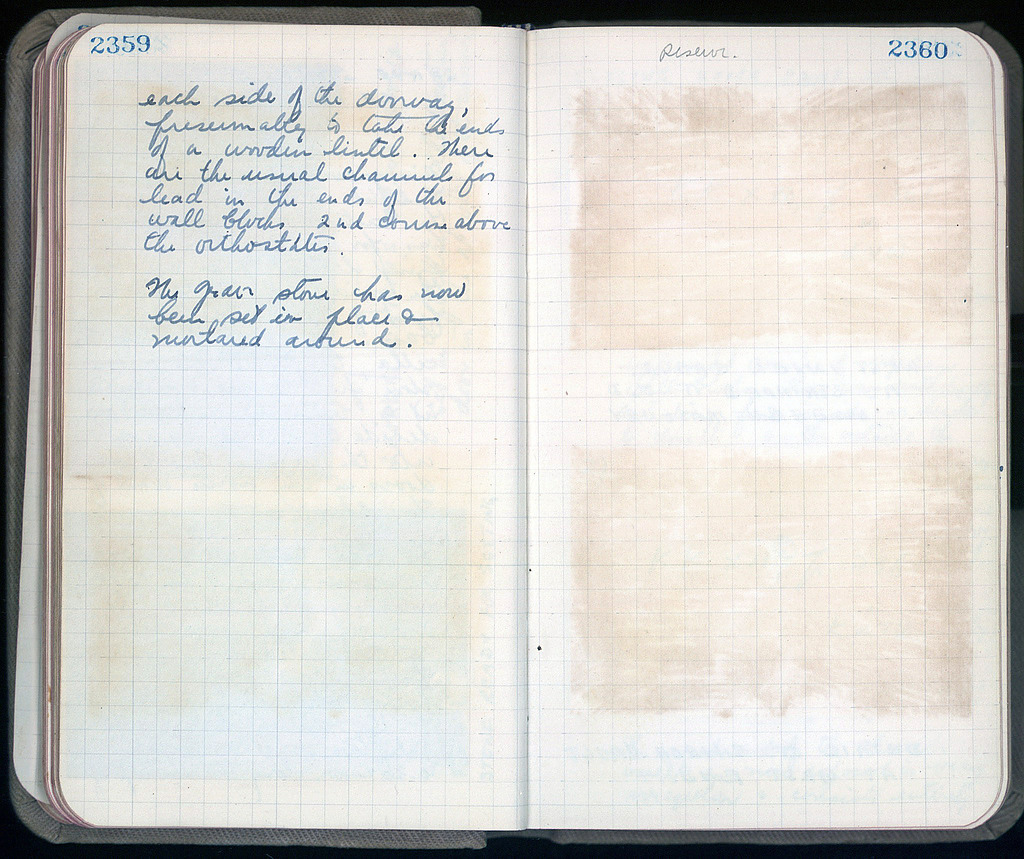 2359
each side of the doorway,
presumably to take the ends
of a wooden lintel. There
are the usual channels for
lead in the ends of the
wall blocks 2nd course above
the orthostates.
The grave stone has now
been set in place &
mortared around.
Reserve.
2360